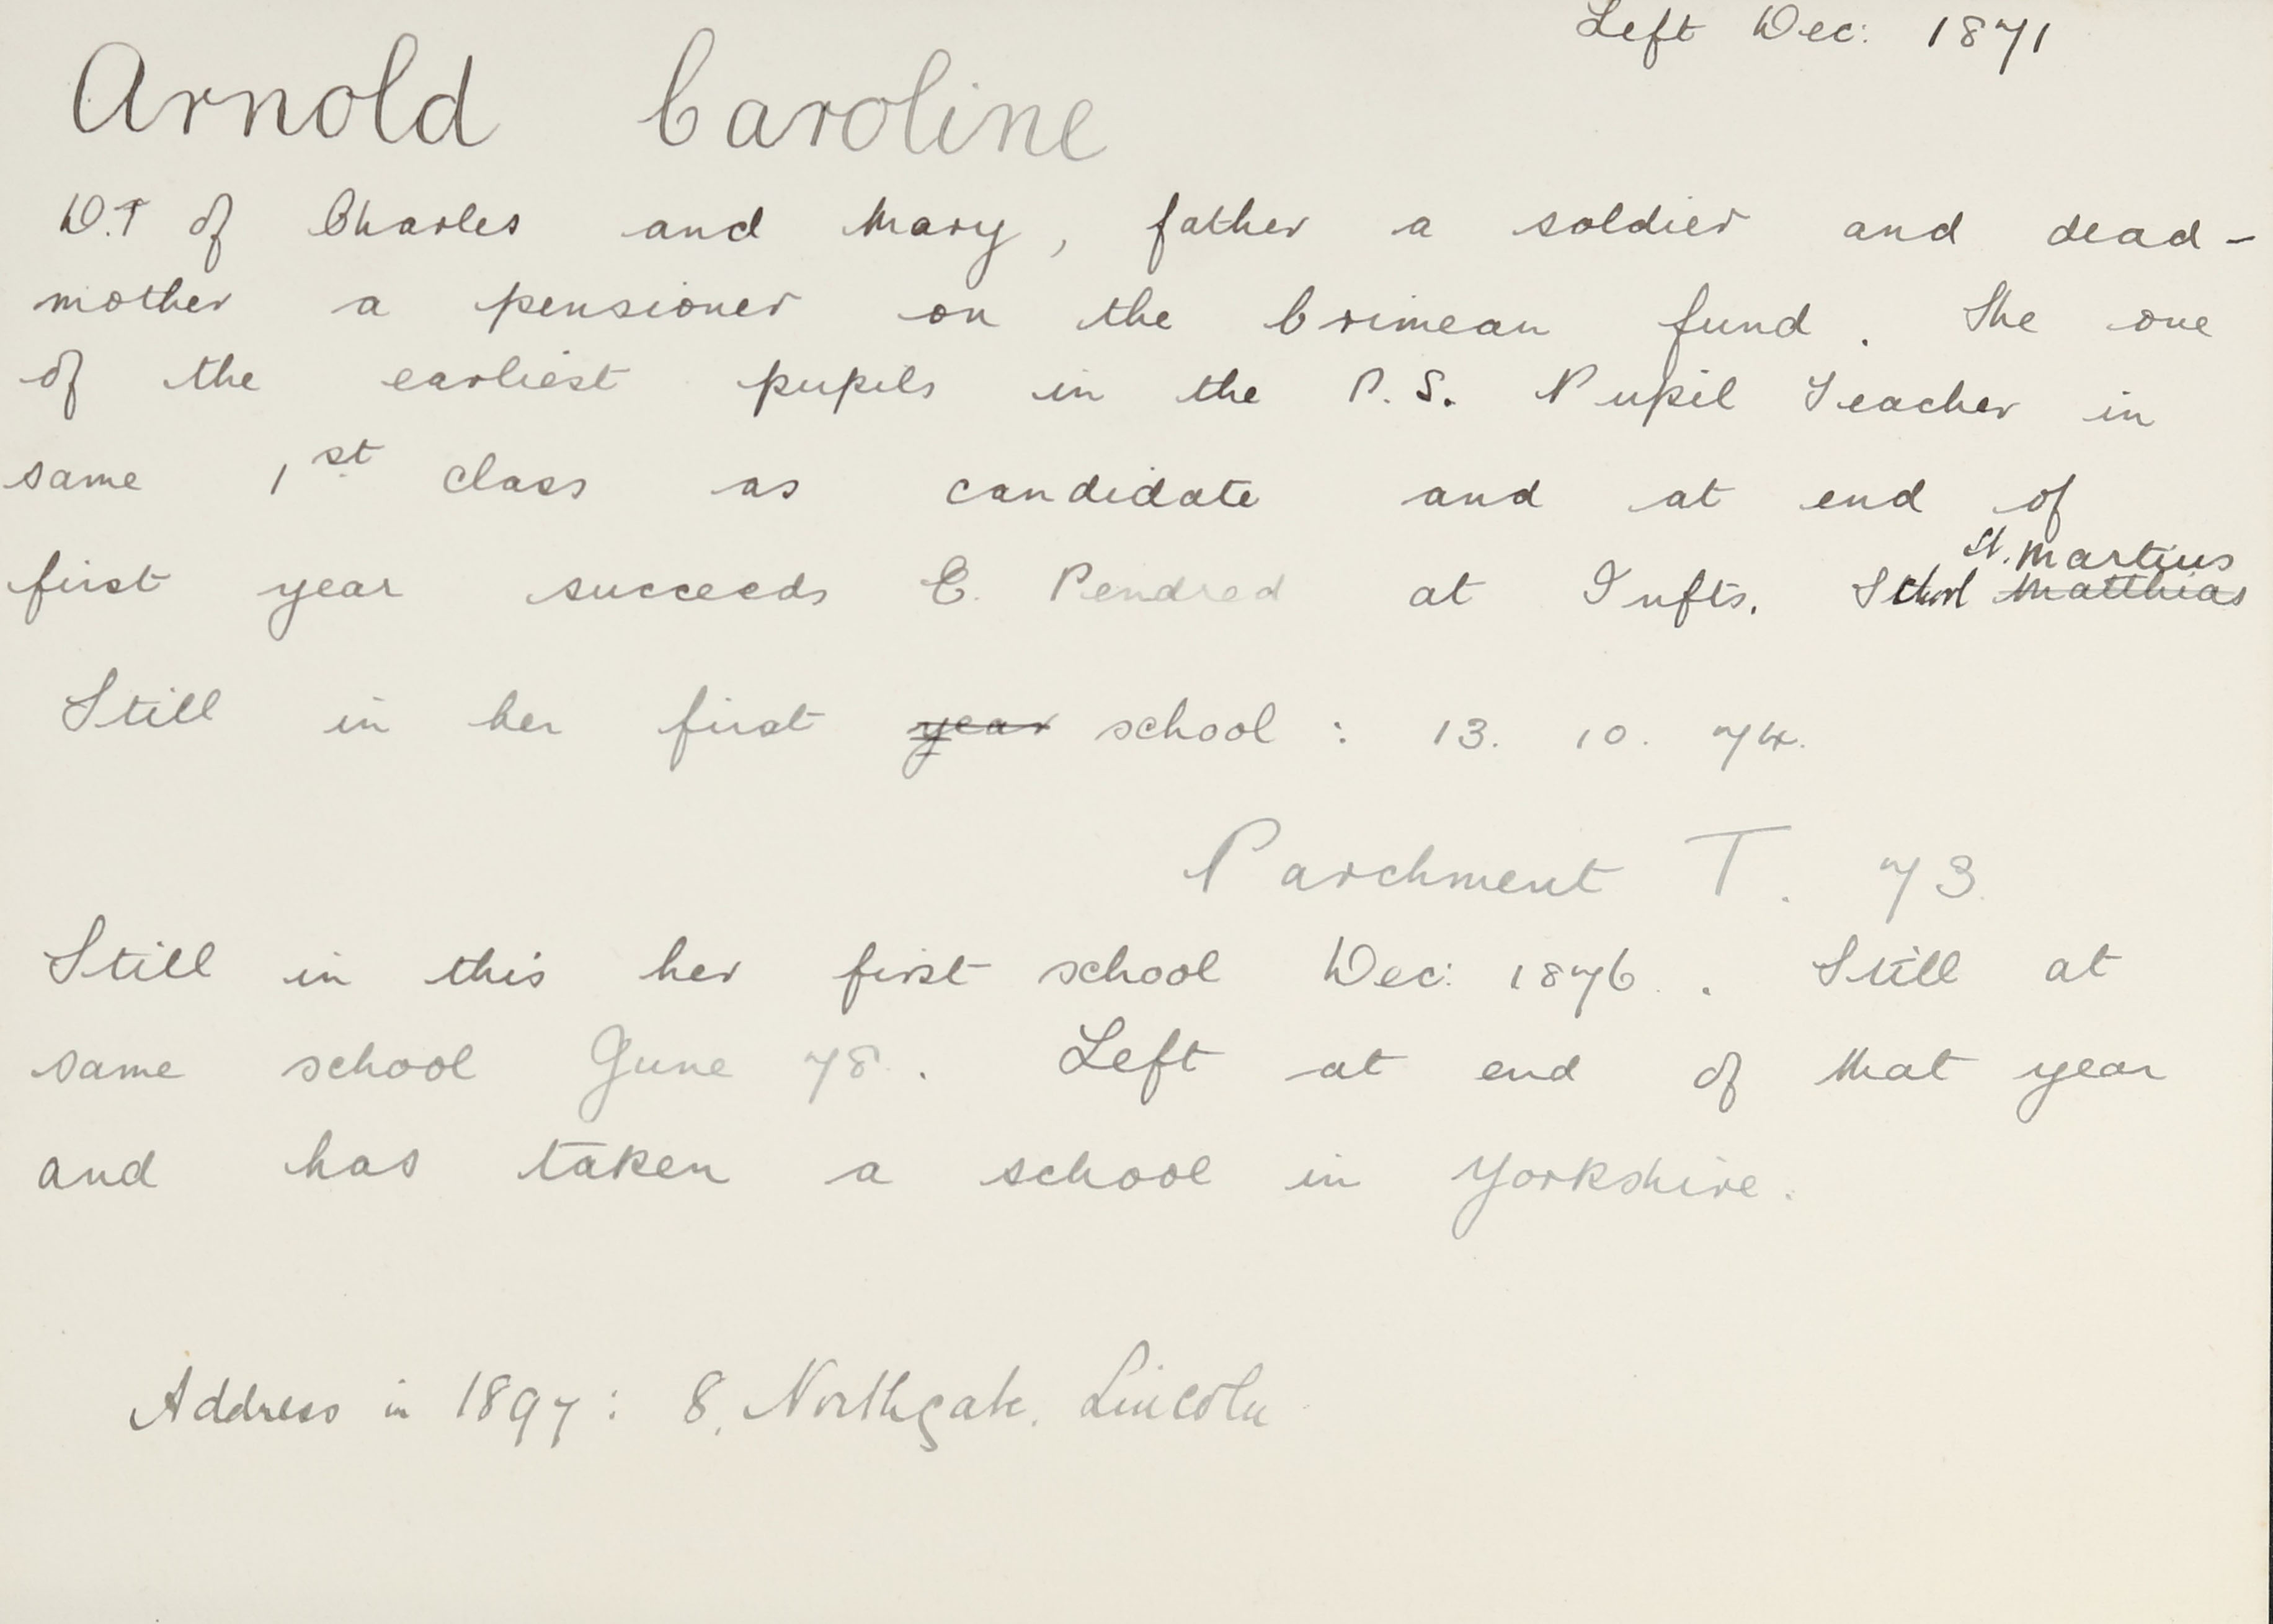 Left Dec: 1871
Arnold Caroline
D.T of Charles and Mary, father a soldier and dead -
mother a pensioner on the Crimean fund. She one
of the earliest pupils in the P.S. Pupil Teacher in
same 1st class as candidate and at end of
first year succeeds E. Pendred at Infts. School St. Martins Matthias
Still in her first year school : 13. 10. 74.
Parchment T. 73.
Still in this her first school Dec: 1876. . Still at
same school June 78. . Left at end of that year
and has taken a school in Yorkshire.
Address in 1897: 8, Northgate. Lincoln